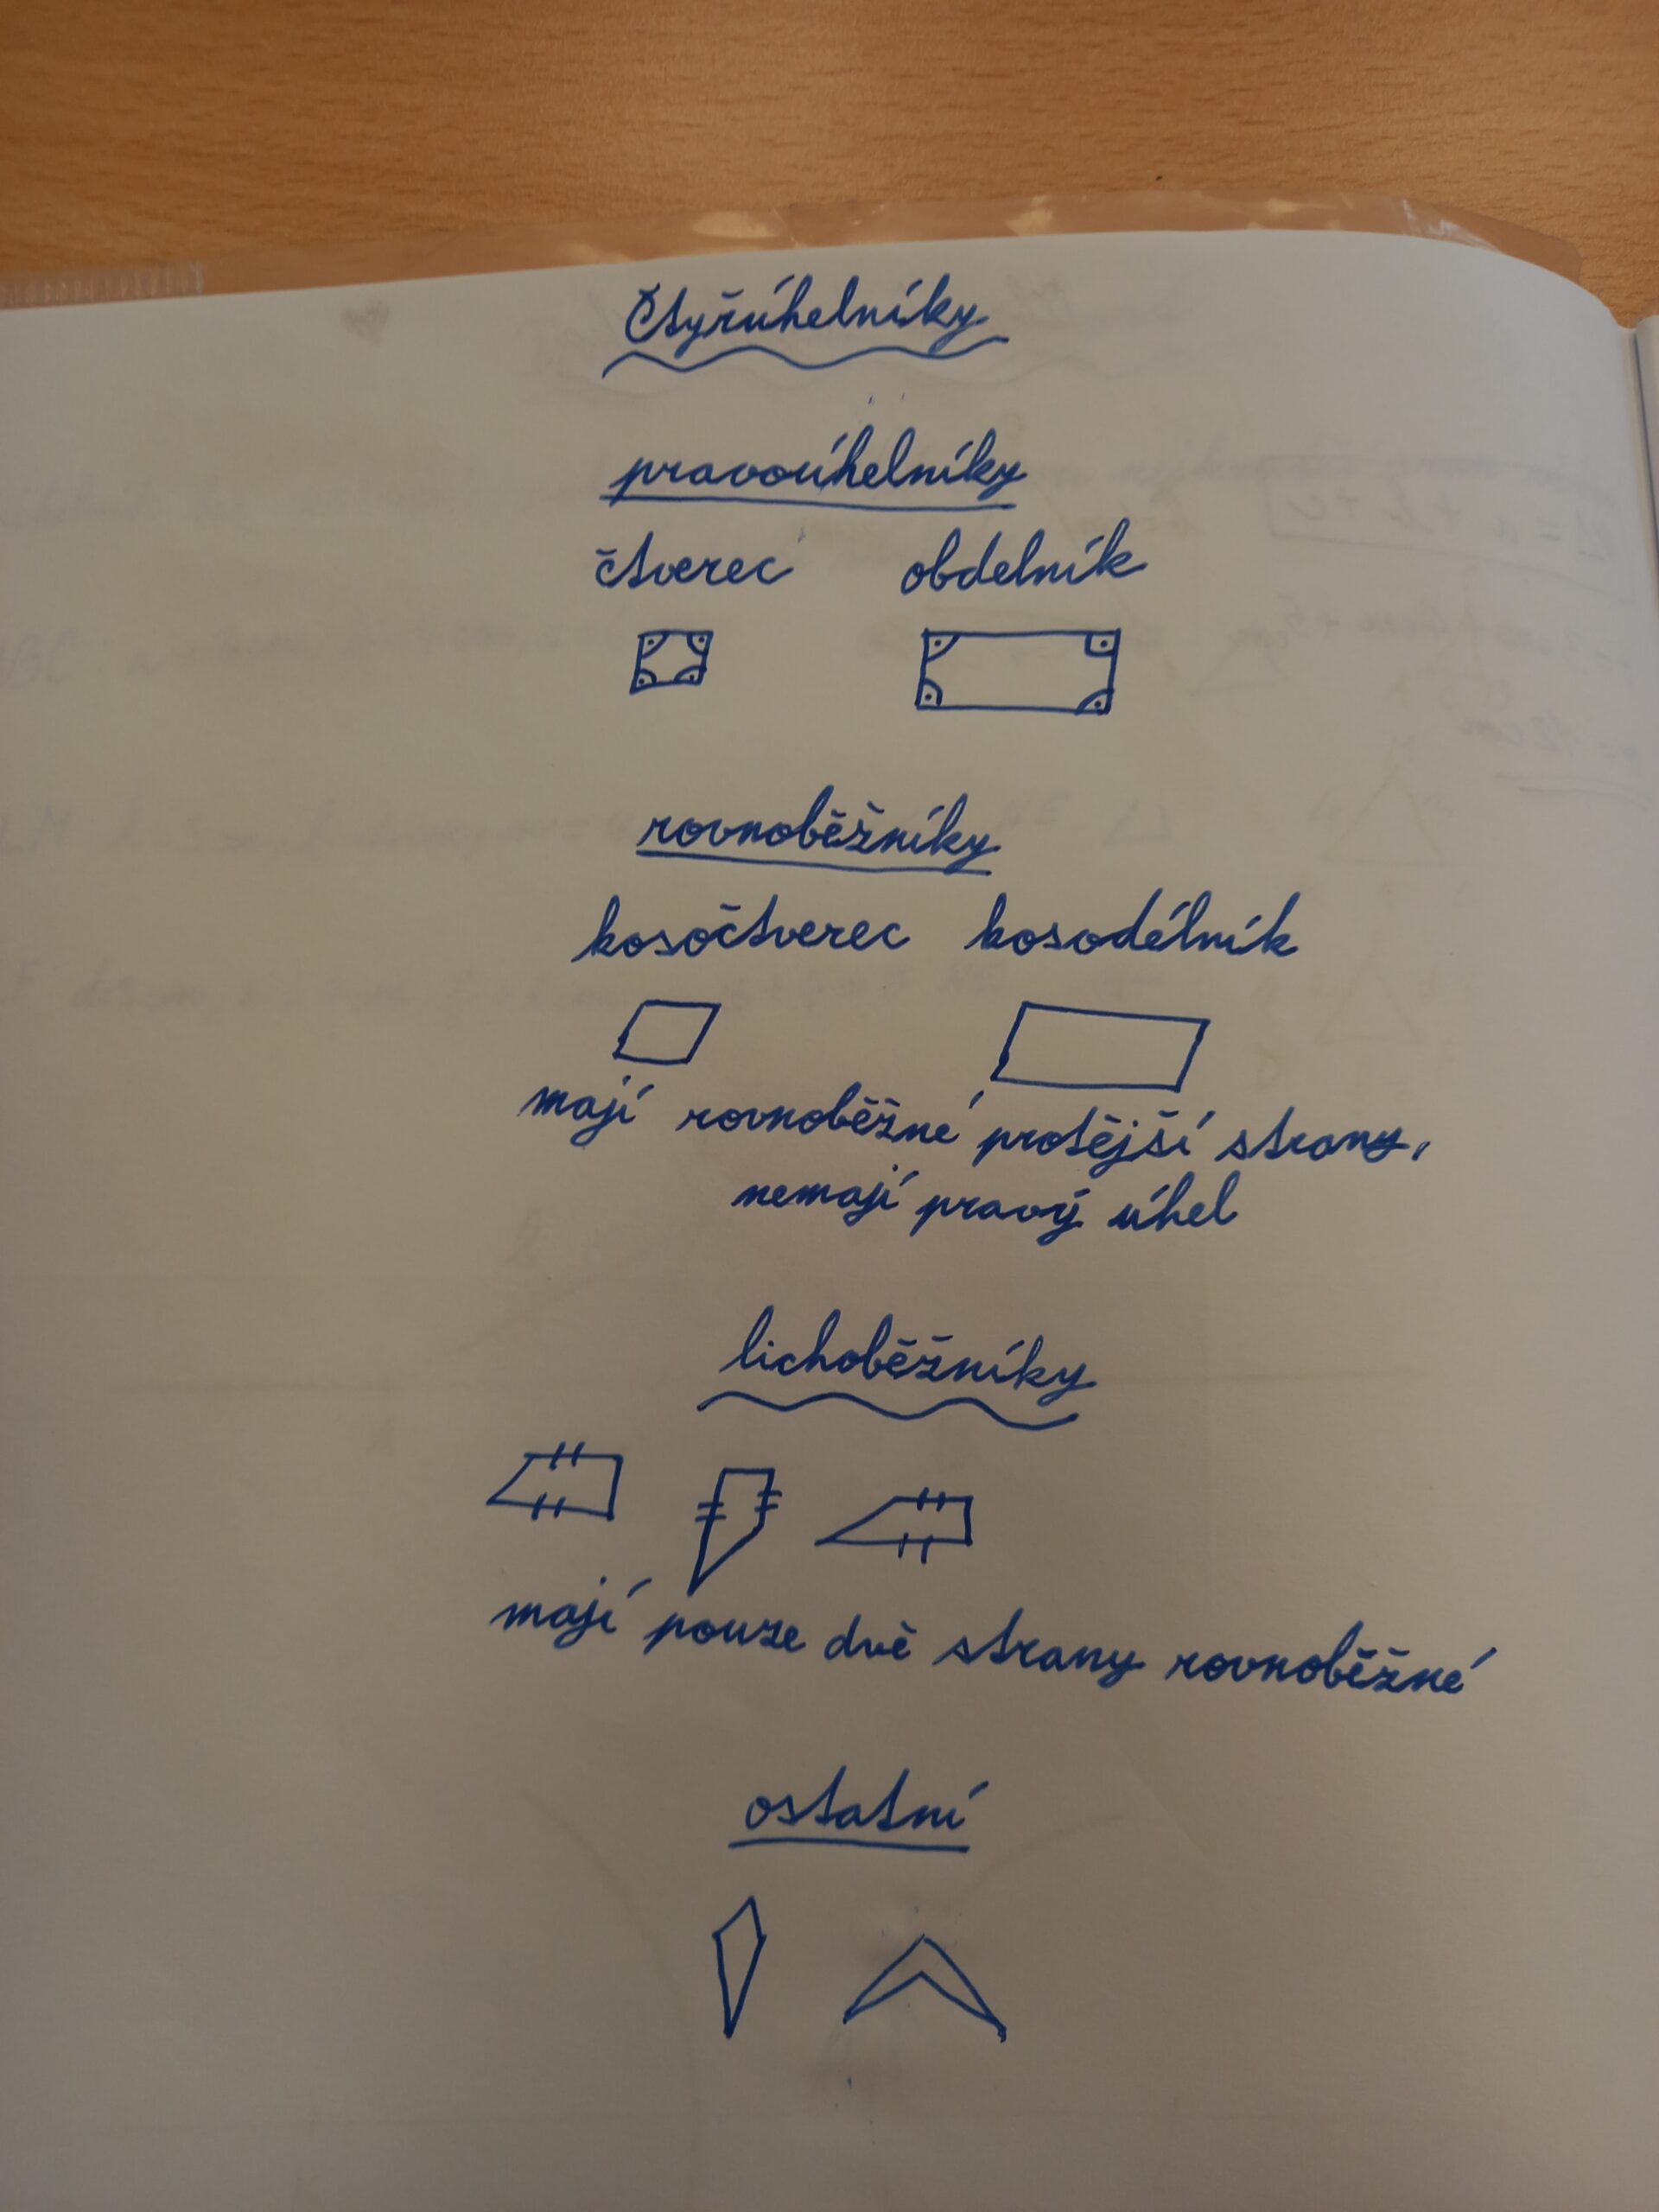 Čtyřúhelníky
pravoúhelníky
čtverec obdelník
rovnoběžníky
kosočtverec kosodélník
mají rovnoběžné protější strany,
nemají pravý úhel
lichoběžníky
mají pouze dvě strany rovnoběžné
ostatní